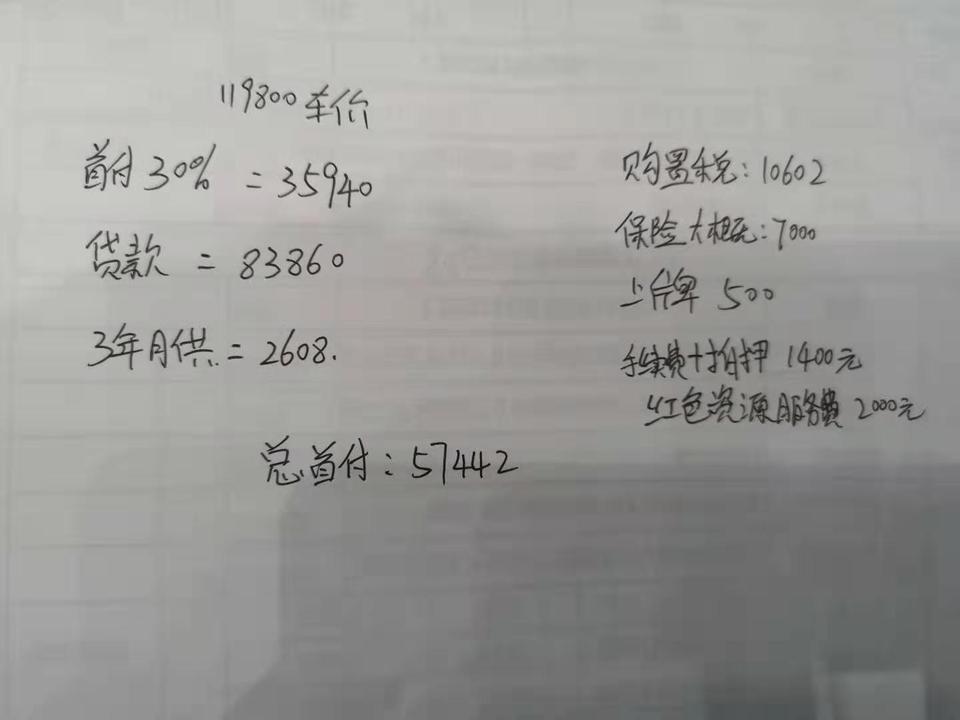 119800车价
首付30% = 35940
贷款 = 83860
3年月供 = 2608.
总首付: 57442
购置税: 10602
保险大概: 7000
上牌 500
手续费+抵押 1400元
红色资源服务费 2000元